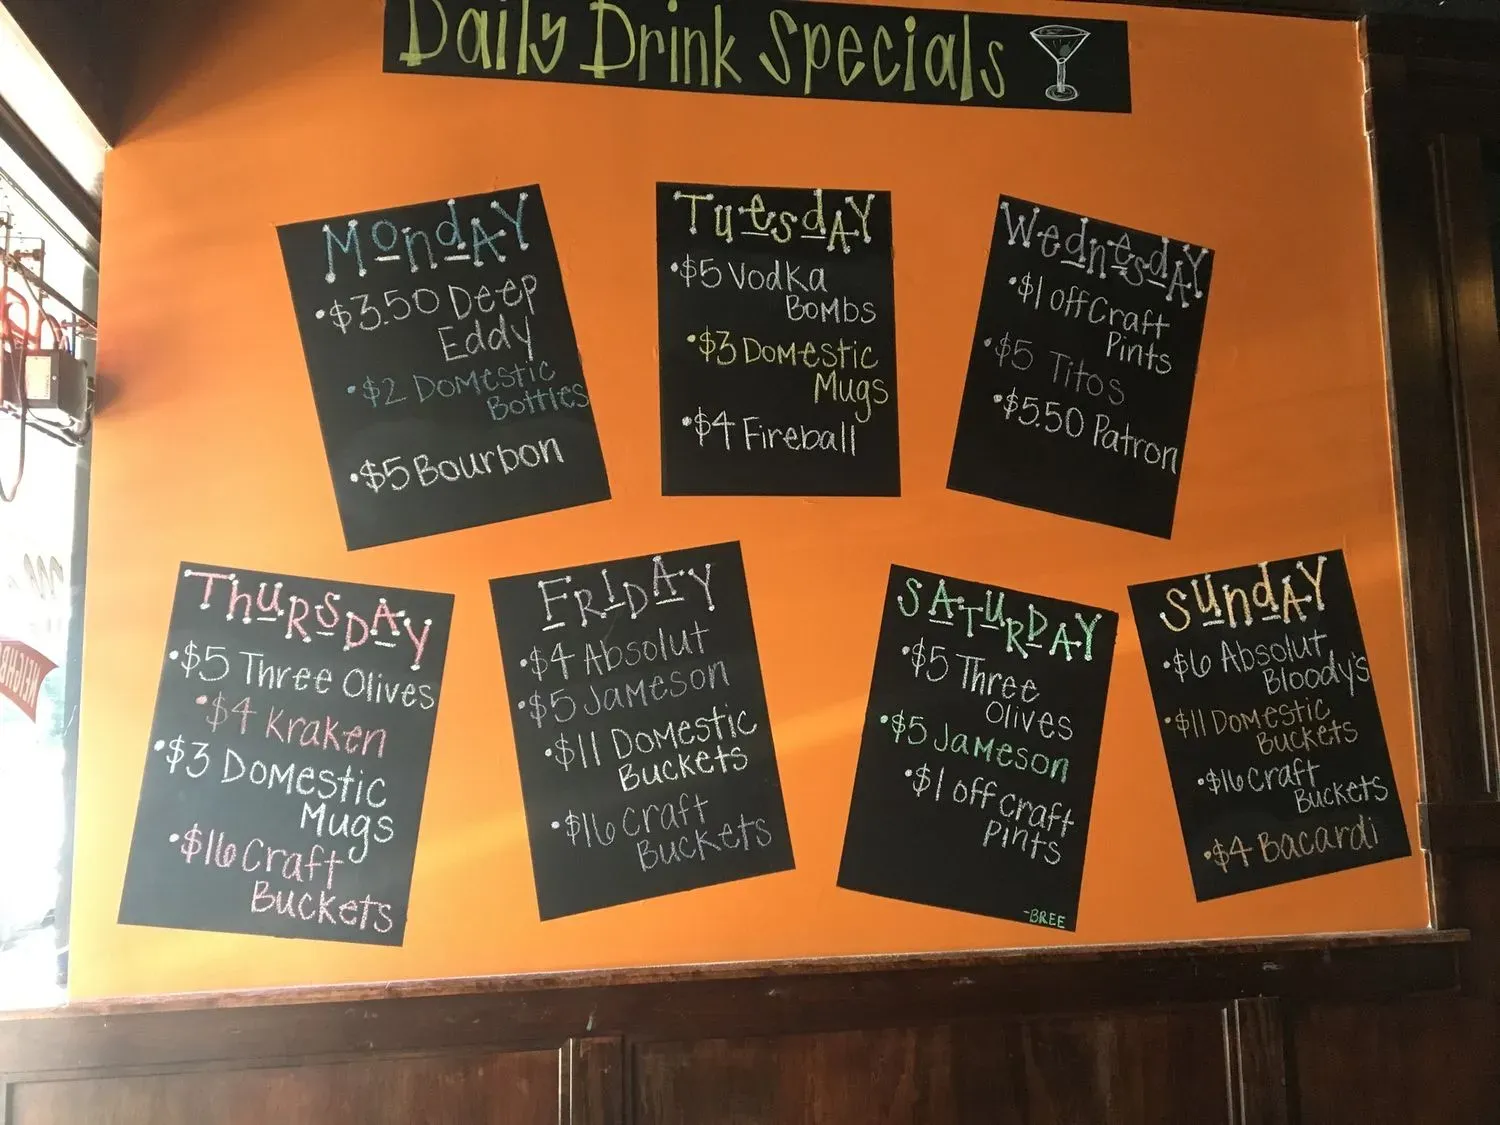 Daily Drink Specials
Monday
•$3.50 Deep
Eddy
•$2 Domestic
Bottles
•$5 Bourbon
Tuesday
•$5 Vodka
Bombs
•$3 Domestic
Mugs
•$4 Fireball
Wednesday
•$1 off Craft
Pints
•$5 Titos
•$5.50 Patron
Thursday
•$5 Three Olives
•$4 Kraken
•$3 Domestic
Mugs
•$16 Craft
Buckets
Friday
•$4 Absolut
•$5 Jameson
•$11 Domestic
Buckets
•$16 Craft
Buckets
Saturday
•$5 Three
Olives
•$5 Jameson
•$1 off Craft
Pints
-BREE
Sunday
•$6 Absolut
Bloody's
•$11 Domestic
Buckets
•$16 Craft
Buckets
•$4 Bacardi